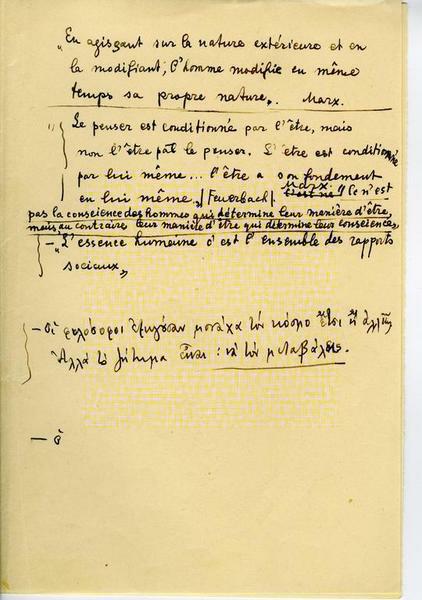 „En agissant sur la nature extérieure et en
la modifiant, l'homme modifie en même
temps sa propre nature„. Marx.
„ Le penser est conditionné par l'être, mais
non l'être par le penser. L'être est conditionné
par lui même... l'être a son fondement
en lui même„ (Feuerbach) Marx: "Ce n'est
pas la conscience des hommes qui détermine leur manière d'être,
mais au contraire leur manière d'être qui détermine leur conscience„
— „L'essence humaine c'est l'ensemble des rapports
sociaux„
— Οἱ φιλόσοφοι ἐξηγῆσαν μονάχα τὸν κόσμο ἔτσι ἢ ἀλλιῶς
Ἀλλὰ τὸ ζήτημα εἶναι: νὰ τὸν μεταβάλεις.
— ὁ